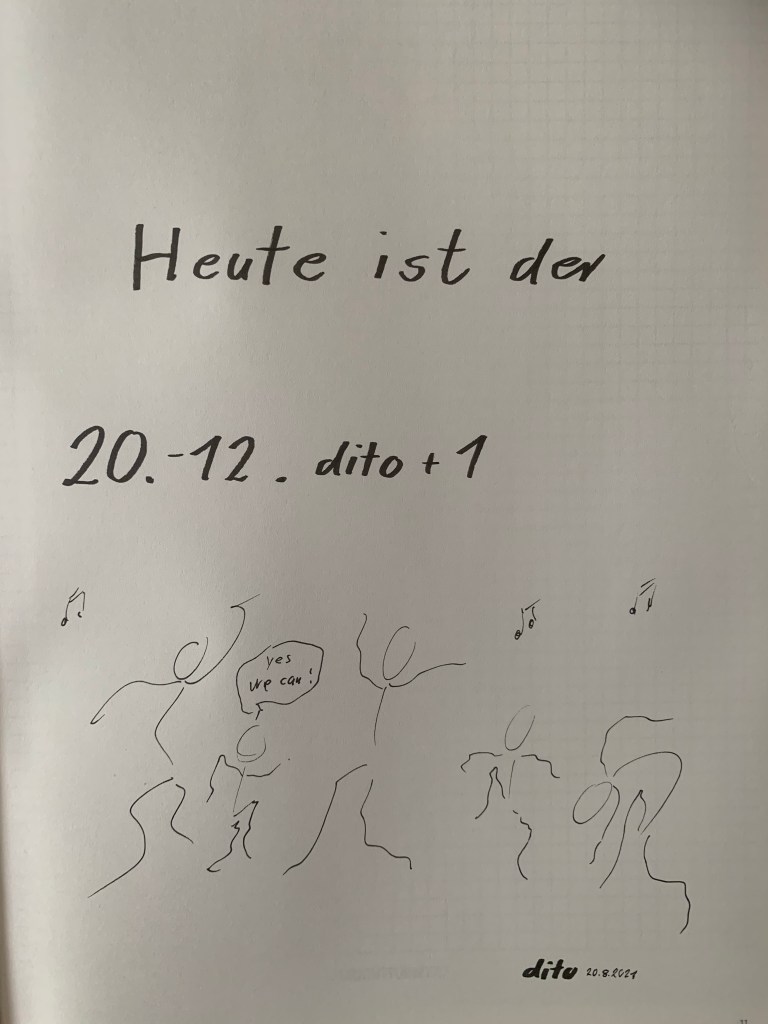 Heute ist der
20.-12. dito + 1
yes
we can!
dito 20.8.2021